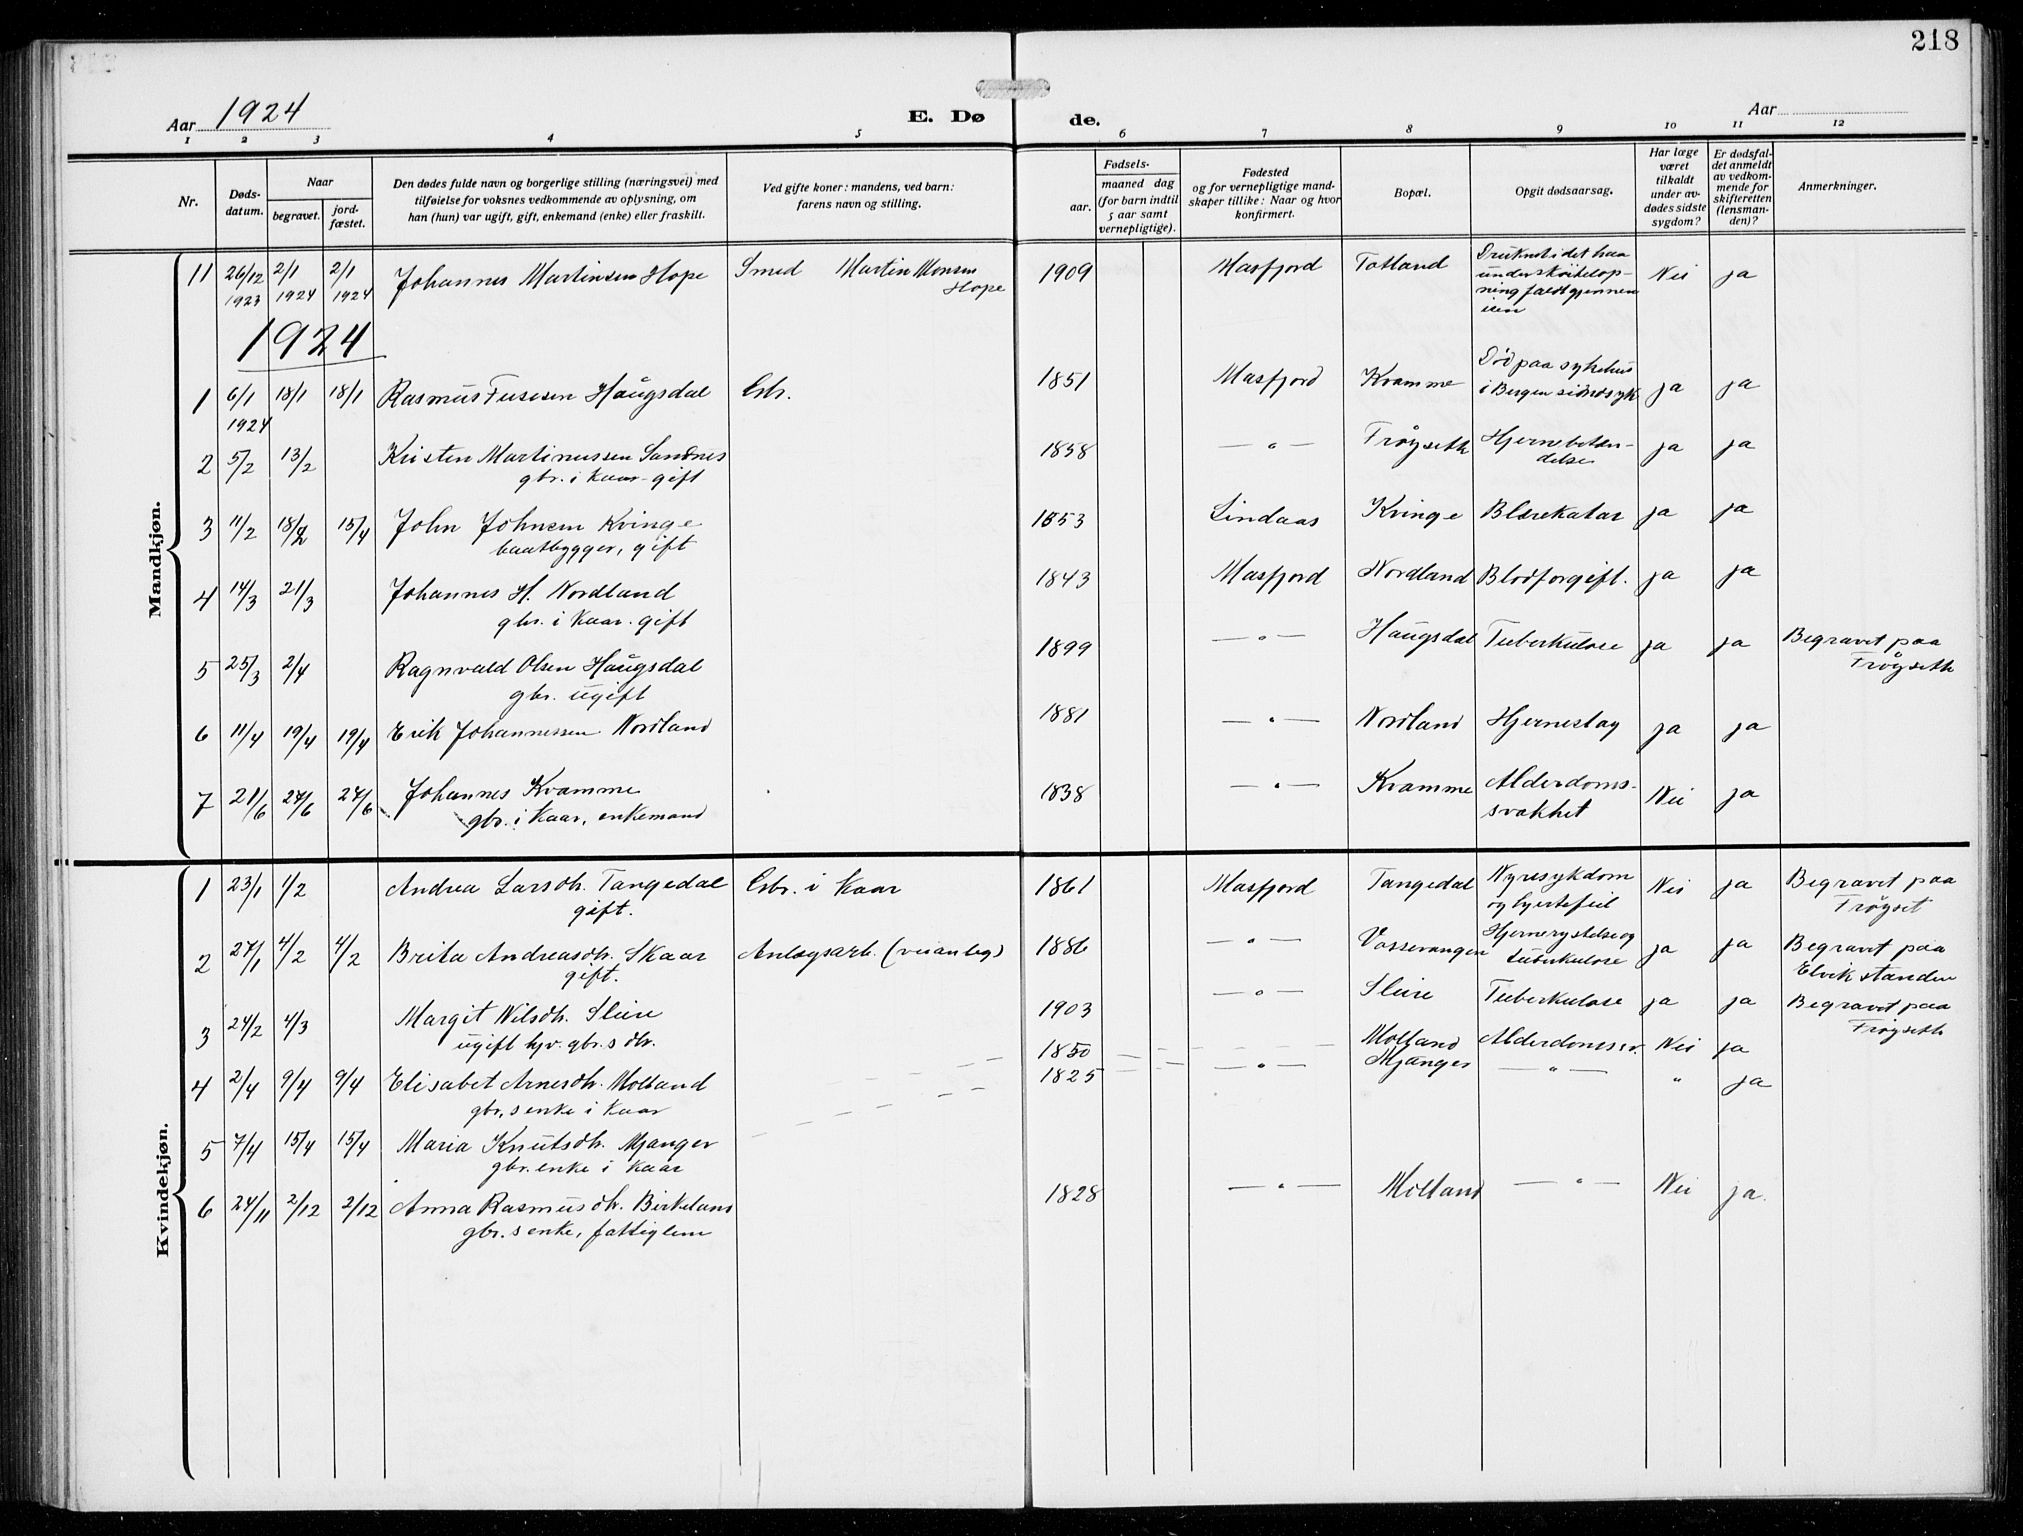 218
Aar 1924
E. Dø
de.
Aar
1 2 3 4 5 6 7 8 9 10 11 12
Nr.
Døds-
datum.
Naar
begravet.
jord-
fæstet.
Den dødes fulde navn og borgerlige stilling (næringsvei) med
tilføielse for voksnes vedkommende av oplysning, om
han (hun) var ugift, gift, enkemand (enke) eller fraskilt.
Ved gifte koner: mandens, ved barn:
farens navn og stilling.
Fødsels-
aar.
maaned dag
(for barn indtil
5 aar samt
vernepligtige).
Fødested
og for vernepligtige mand-
skaper tillike: Naar og hvor
konfirmert.
Bopæl.
Opgit dødsaarsag.
Har læge
været
tilkaldt
under av-
dødes sidste
sygdom?
Er dødsfal-
det anmeldt
av vedkom-
mende for
skifteretten
(lensman-
den)?
Anmerkninger.
Mandkjøn.
11 26/12 1923 2/1 1924 2/1 1924 Johannes Martinsen Hope Smed Martin Monsen Hope 1909 Masfjord Totland Druknet idet han
under skøiteløp-
ning faldt gjennem
isen Nei ja
1924
1 6/1 1924 18/1 18/1 Rasmus Haugsdal Gbr. 1851 Masfjord Kvamme Død paa sykehus
i Bergen sindssyk ja ja
2 5/2 13/2 Kristen Martinussen Sandnes
gbr. i kaar - gift 1858 — " — Frøyseth Hjernebeten-
delse ja ja
3 11/2 18/2 15/4 John Johnsen Kvinge
baatbygger, gift 1853 Lindaas Kvinge Blærekatar ja ja
4 14/3 21/3 Johannes H. Nordland
gbr. i kaar. gift 1843 Masfjord Nordland Blodforgift. ja ja
5 25/3 2/4 Ragnvald Olsen Haugsdal
gbr. ugift 1899 — " — Haugsdal Tuberkulose ja ja Begravet paa
Frøyseth
6 11/4 19/4 19/4 Erik Johannessen Nordland 1881 — " — Nordland Hjerneslag ja ja
7 21/6 27/6 27/6 Johannes Kvamme
gbr. i kaar, enkemand 1838 — " — Kvamme Alderdoms-
svakhet Nei ja
Kvindekjøn.
1 23/1 1/2 Andrea Larsdtr. Tangedal
gift. Gbr. i kaar 1861 Masfjord Tangedal Nyresykdom
og hjertefeil Nei ja Begravet paa
Frøyset
2 27/1 4/2 4/2 Brita Andreasdtr. Skaar
gift. Anlægsarb. (veianleg) 1886 — " — Vossevangen Hjernerystelse og
tuberkulose ja ja Begravet paa
Elvikstanden
3 24/2 4/3 Margit Nilsdtr. Sleire
ugift hjv. gbr.s dtr. 1903 — " — Sleire Tuberkulose ja ja Begravet paa
Frøyseth
4 2/4 9/4 9/4 Elisabet Arnesdtr. Molland
gbr.s enke i kaar 1850 Molland Alderdomssv. Nei ja
5 7/4 15/4 15/4 Maria Knutsdtr. Mjanger
gbr. enke i kaar 1825 — " — Mjanger — " — " ja
6 24/11 2/12 2/12 Anna Rasmusdtr. Birkeland
gbr.s enke, fattiglem 1828 — " — Molland — " — Nei ja.